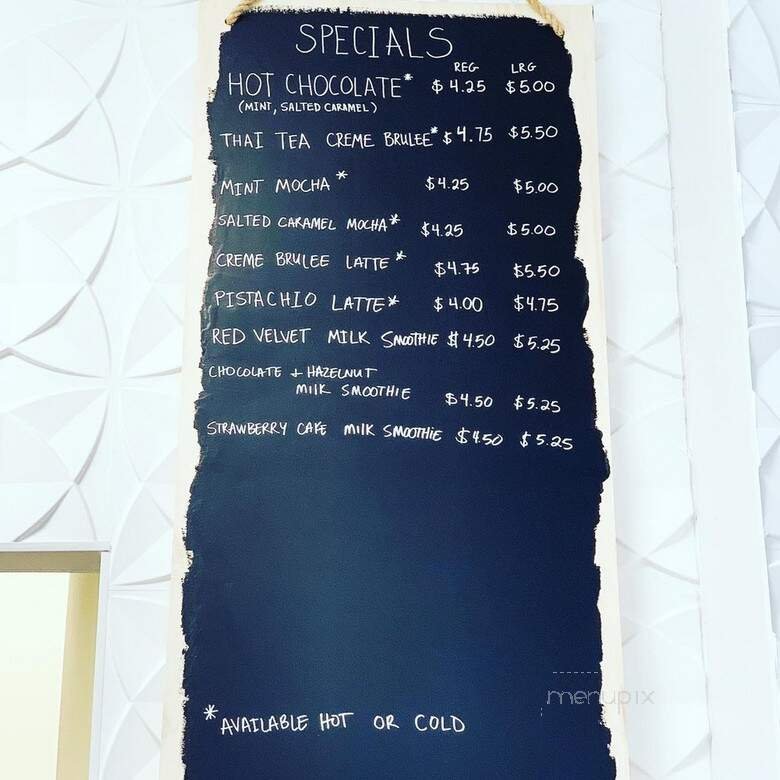 SPECIALS
REG LRG
HOT CHOCOLATE* $4.25 $5.00
(MINT, SALTED CARAMEL)
THAI TEA CREME BRULEE* $4.75 $5.50
MINT MOCHA* $4.25 $5.00
SALTED CARAMEL MOCHA* $4.25 $5.00
CREME BRULEE LATTE* $4.75 $5.50
PISTACHIO LATTE* $4.00 $4.75
RED VELVET MILK SMOOTHIE $4.50 $5.25
CHOCOLATE + HAZELNUT
MILK SMOOTHIE $4.50 $5.25
STRAWBERRY CAKE MILK SMOOTHIE $4.50 $5.25
menupix
*AVAILABLE HOT OR COLD